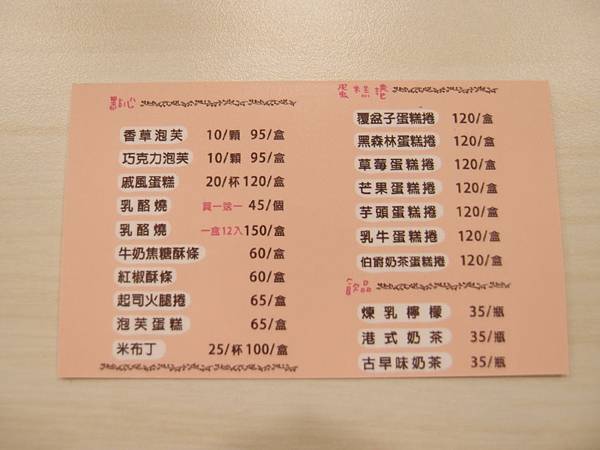 點心
香草泡芙 10/顆 95/盒
巧克力泡芙 10/顆 95/盒
戚風蛋糕 20/杯 120/盒
乳酪燒 買一送一 45/個
乳酪燒 一盒12入 150/盒
牛奶焦糖酥條 60/盒
紅椒酥條 60/盒
起司火腿捲 65/盒
泡芙蛋糕 65/盒
米布丁 25/杯 100/盒
蛋糕捲
覆盆子蛋糕捲 120/盒
黑森林蛋糕捲 120/盒
草莓蛋糕捲 120/盒
芒果蛋糕捲 120/盒
芋頭蛋糕捲 120/盒
乳牛蛋糕捲 120/盒
伯爵奶茶蛋糕捲 120/盒
飲品
煉乳檸檬 35/瓶
港式奶茶 35/瓶
古早味奶茶 35/瓶